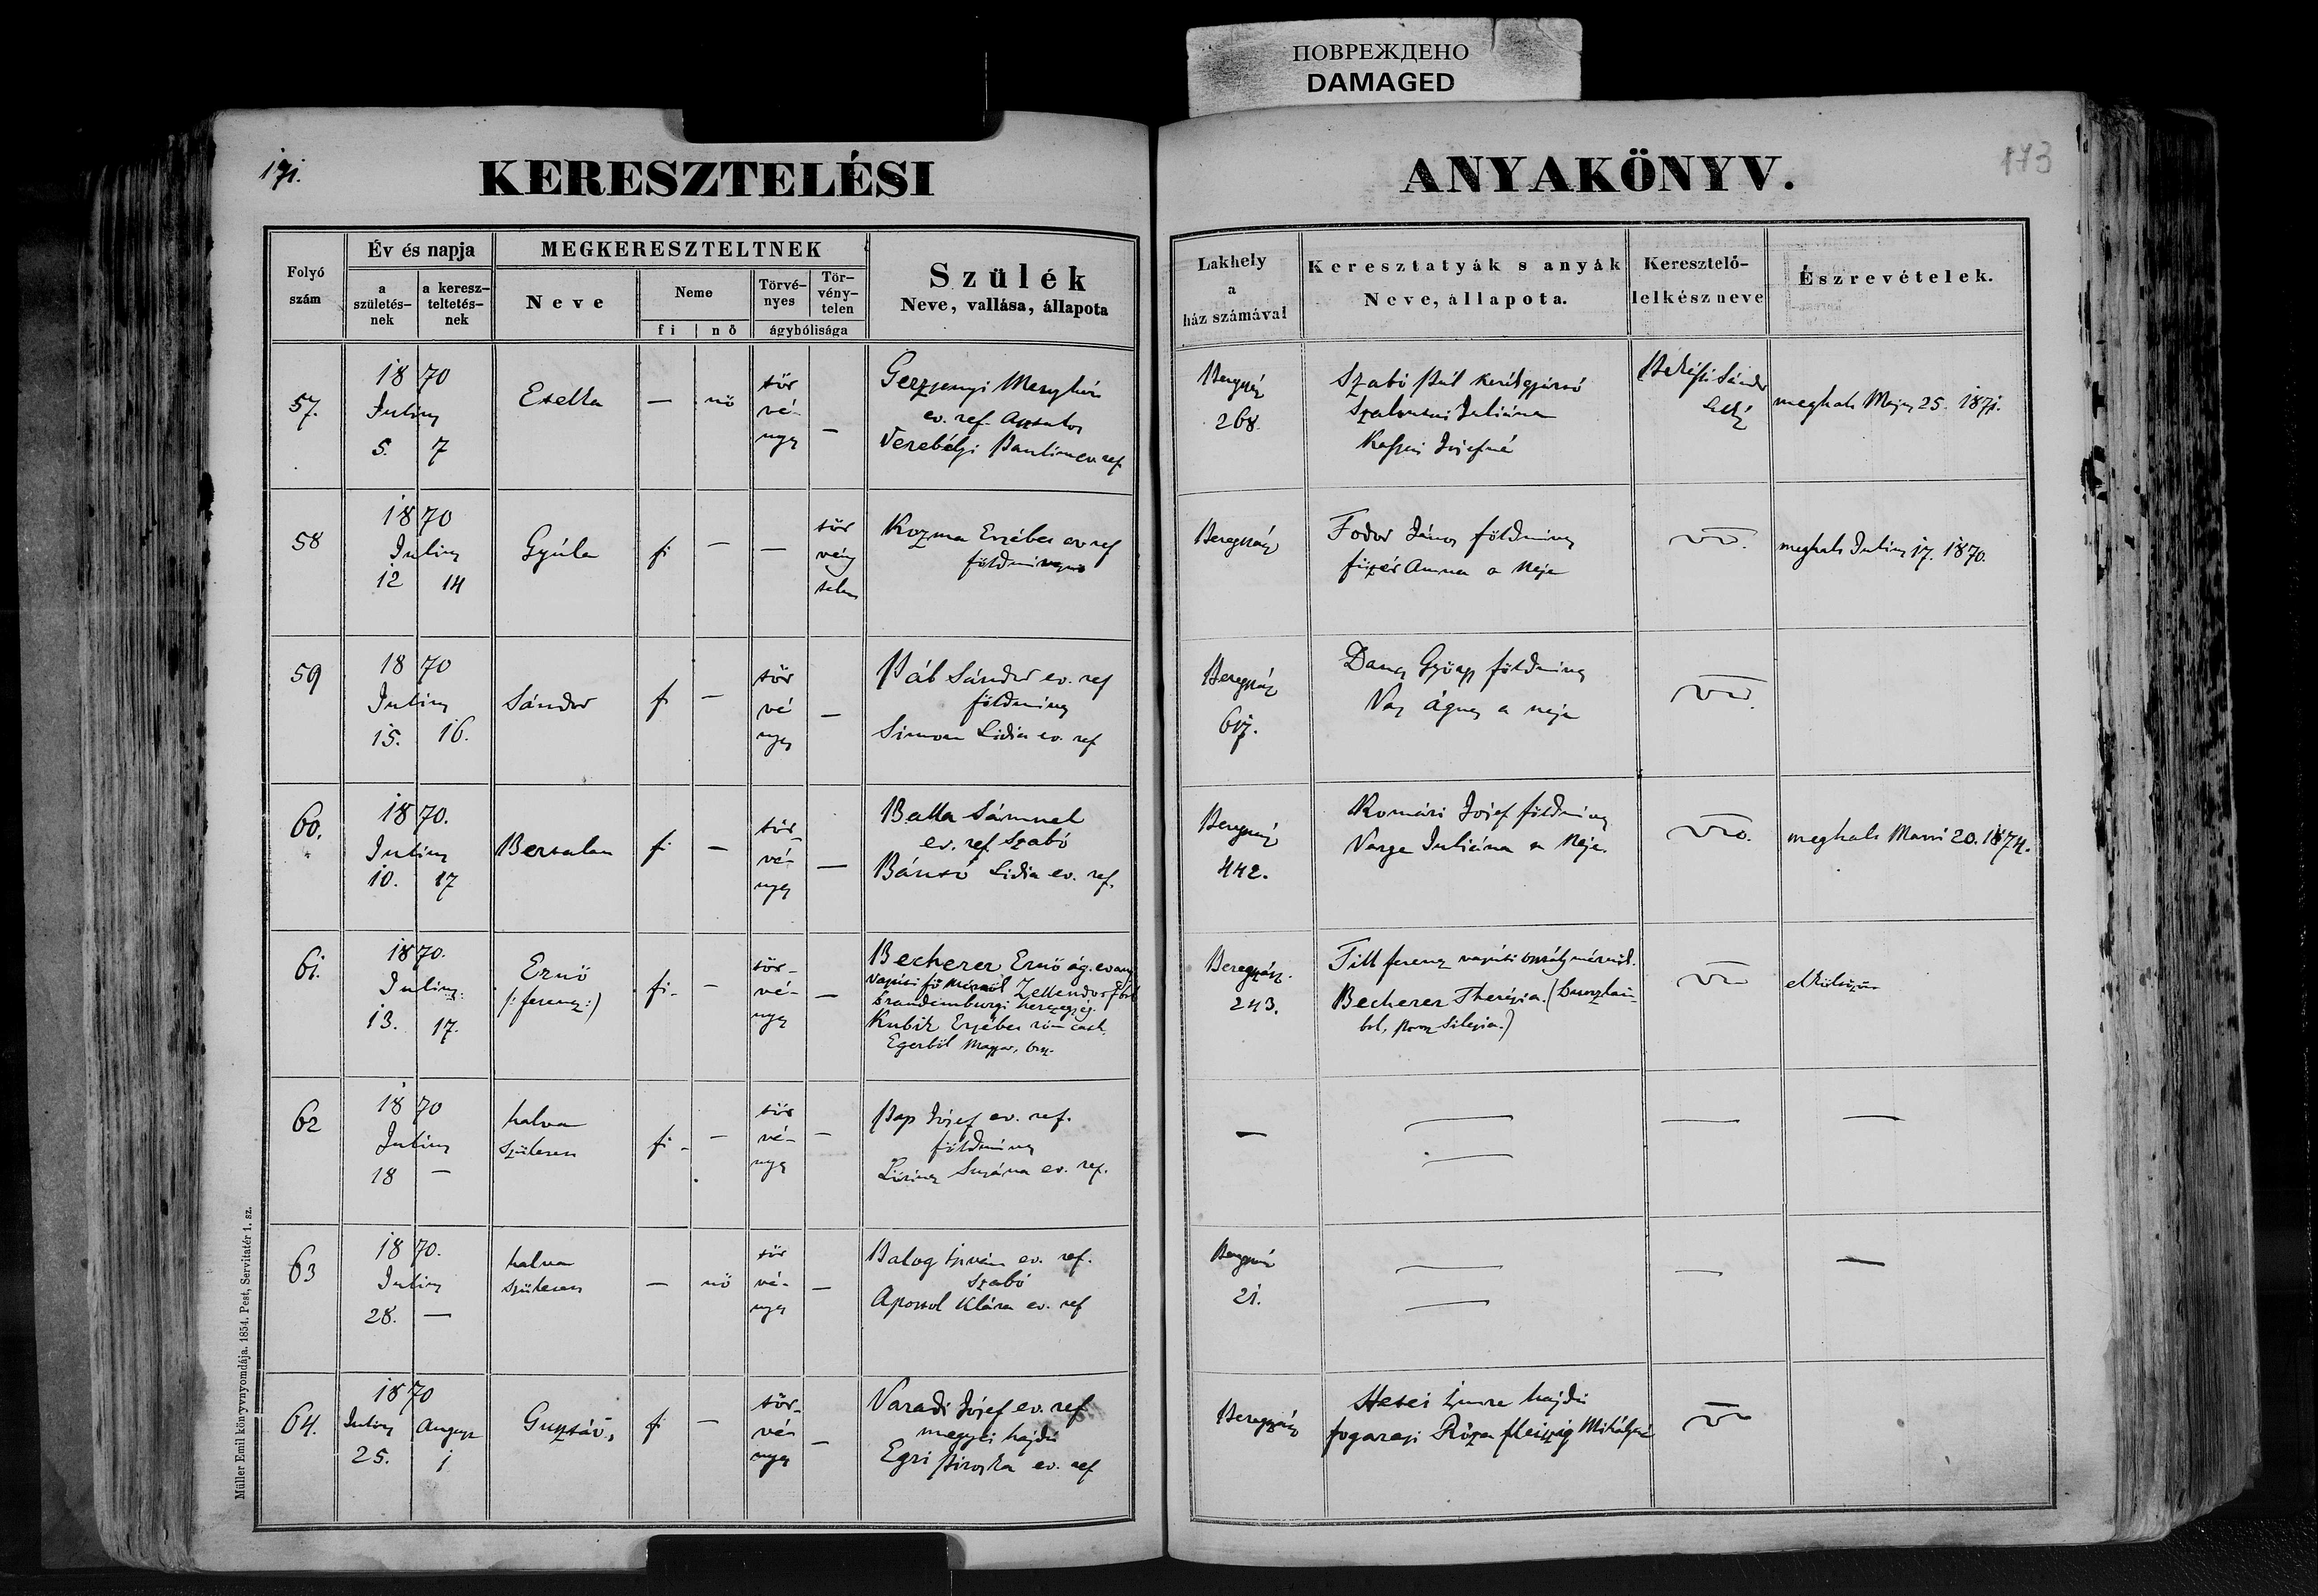 ПОВРЕЖДЕНО
DAMAGED
171.
KERESZTELÉSI
ANYAKÖNYV.
173
Folyó
szám
Év és napja
a
születés-
nek
a keresz-
teltetés-
nek
MEGKERESZTELTNEK
Neve
Neme
fi nő
Törvé-
nyes
Tör-
vény-
telen
ágybólisága
Szülék
Neve, vallása, állapota
Lakhely
a
ház számával
Keresztatyák s anyák
Neve, állapota.
Keresztelő-
lelkész neve
Észrevételek.
57.
1870
Julius
5. 7
Etelka
— nő
tör
vé-
nyes —
ev. ref.
Verebélyi Paulina ev. ref
268.
Szabó Pál
Juliána
Józsefné
Sándor
meghalt Május 25. 1871.
58
1870
Julius
12 14
Gyúla
fi — —
tör
vény
telen
Kozma Erzsébet ev ref
Beregszász
Fodor János földműves
Anna a neje
meghalt Julius 17. 1870.
59
1870
Julius
15. 16.
Sándor
fi —
tör
vé
nyes —
Pál Sándor ev. ref
földműves
Simon Lidia ev. ref
Beregszász
Dancs György földműves
Vas Ágnes a neje
60.
1870.
Julius
10. 17
Bertalan
fi —
tör-
vé-
nyes —
Balla Sámuel
ev. ref. Szabó
Lidia ev. ref.
Beregszász
442.
Komári József földműves
Varga Juliána a Neje.
meghalt 20. 1874.
61.
1870.
Julius
13. 17.
Ernő
(: ferencz :)
fi. —
tör-
vé-
nyes —
Becherer Ernő ág. evang
vasúti fő mérnök Zellendorfból
brandenburgi herczegség.
Kubik Erzsébet róm cath.
Egerből Magyar. orsz.
Beregszász.
243.
Till ferencz vasúti osztálymérnök.
Becherer Therézia.
Silezia.)
elköltözött
62
1870
Julius
18 —
halva
született
fi. —
tör
vé-
nyes —
Pap József ev. ref.
földműves
Lőrincz Susána ev. ref.
—
—
—
—
—
63
1870.
Julius
28. —
halva
született
— nő
tör
vé-
nyes —
Balog István ev. ref.
Szabó
Apostol Klára ev. ref
Beregszász
21.
—
—
—
—
64.
1870
Julius August
25. 1
Gusztáv,
fi —
tör-
vé-
nyes —
Varadi József ev. ref
megyei hajdú
Egri Piroska ev. ref
Beregszász
Imre hajdú
fogarasi Róza Mihályné
Müller Emil könyvnyomdája. 1854. Pest, Servitatér 1. sz.